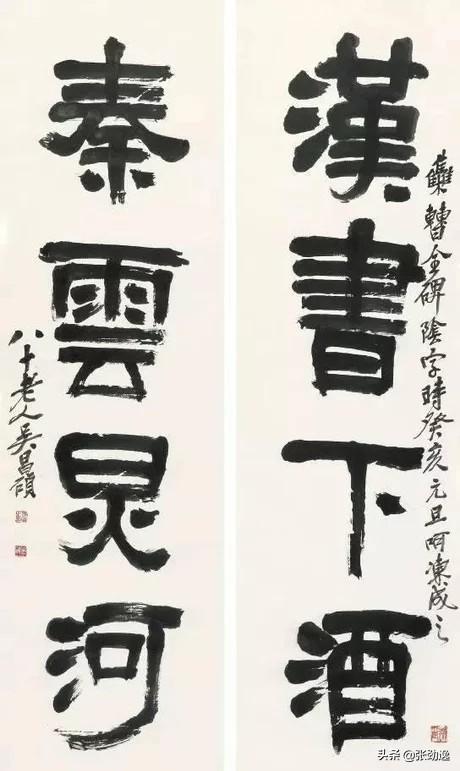 漢書下酒
雧曹全碑陰字時癸亥元旦呵凍成之
秦雲炅河
八十老人吳昌碩
头条 @张劲逸